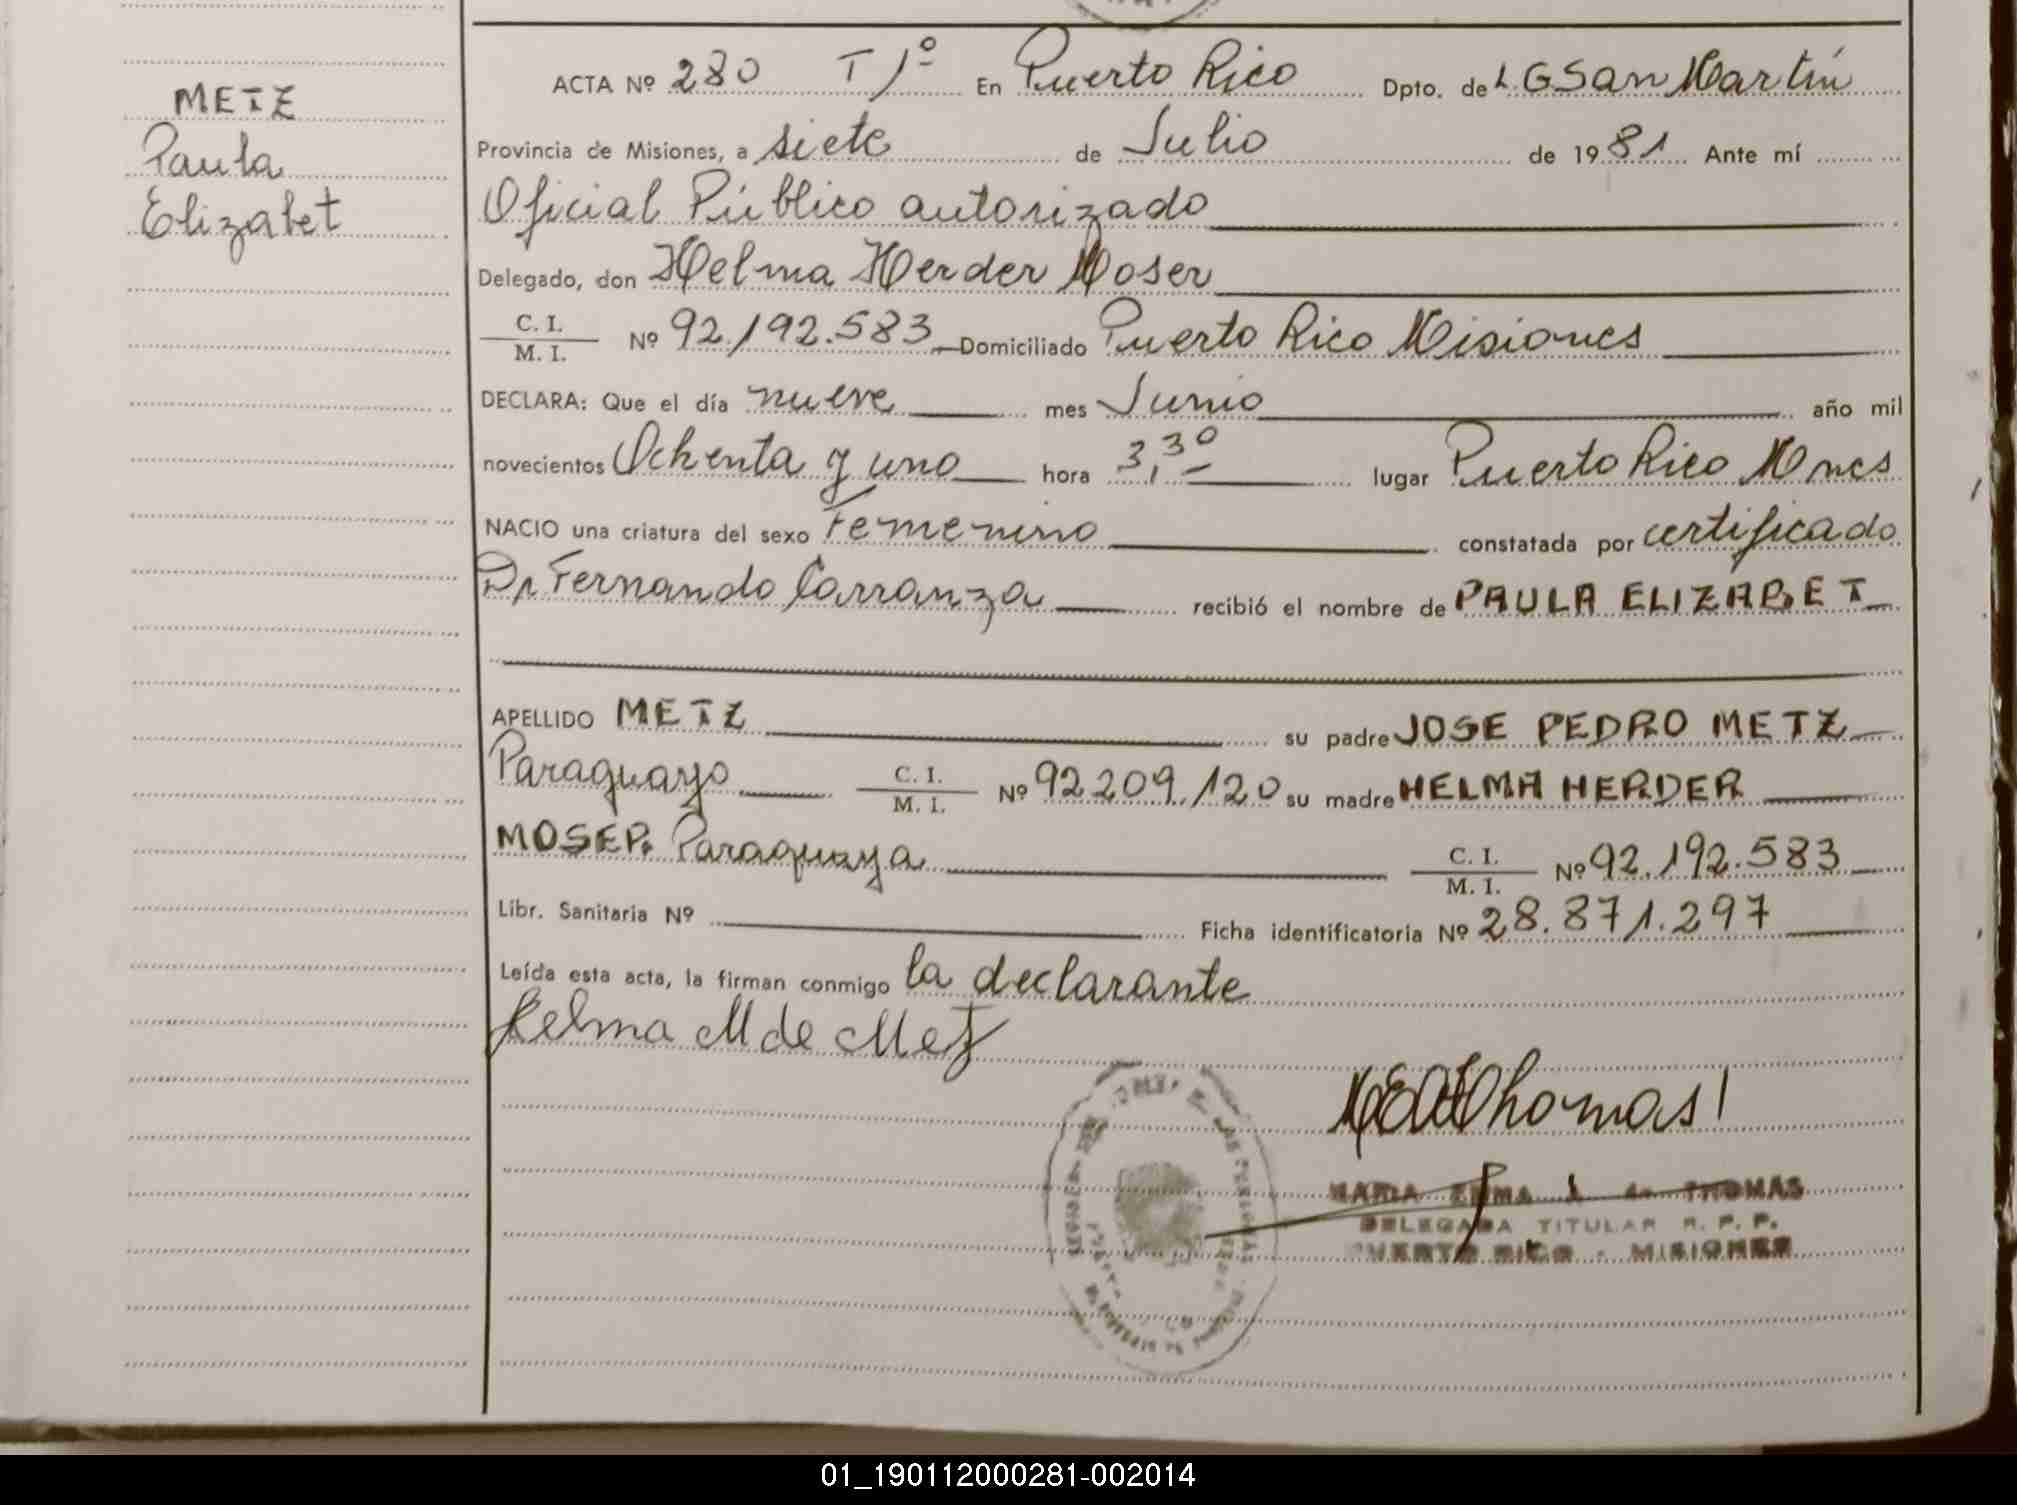 METZ
Paula
Elizabet
ACTA Nº 280 T 1º En Puerto Rico Dpto. de L G San Martín
Provincia de Misiones, a siete de Julio de 1981 Ante mí
Oficial Público autorizado
Delegado, don Helma Herder Moser
C. I.
M. I. Nº 92.192.583 Domiciliado Puerto Rico Misiones
DECLARA: Que el día nueve mes Junio año mil
novecientos Ochenta y uno hora 3,30 lugar Puerto Rico Mnes
NACIO una criatura del sexo Femenino constatada por certificado
Dr Fernando Carranza recibió el nombre de PAULA ELIZABET
APELLIDO METZ su padre JOSE PEDRO METZ
Paraguayo C. I.
M. I. Nº 92 209.120 su madre HELMA HERDER
MOSER. Paraguaya C. I.
M. I. Nº 92.192.583
Libr. Sanitaria Nº Ficha identificatoria Nº 28.871.297
Leída esta acta, la firman conmigo la declarante
Helma M de Metz
Thomas
MARIA EMMA de THOMAS
DELEGADA TITULAR R. P. P.
PUERTO RICO - MISIONES
01_190112000281-002014